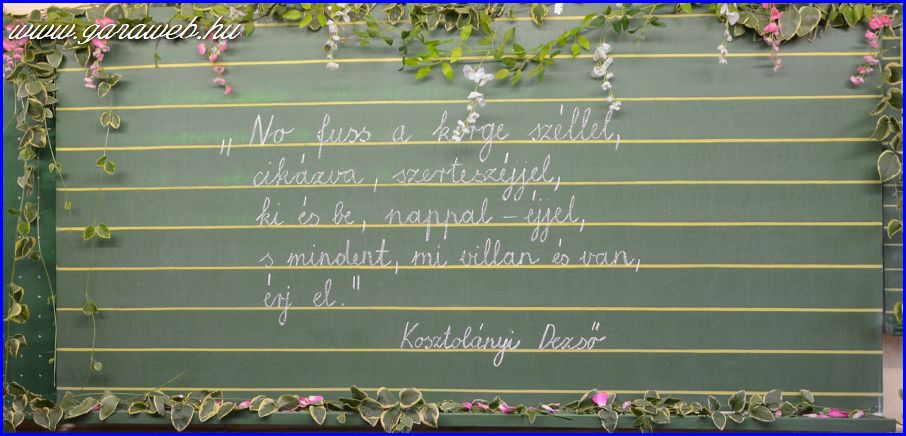 www.garaweb.hu
„No fuss a kerge széllel,
cikázva, szerteszéjjel,
ki és be, nappal - éjjel,
s mindent, mi villan és van,
érj el."
Kosztolányi Dezső